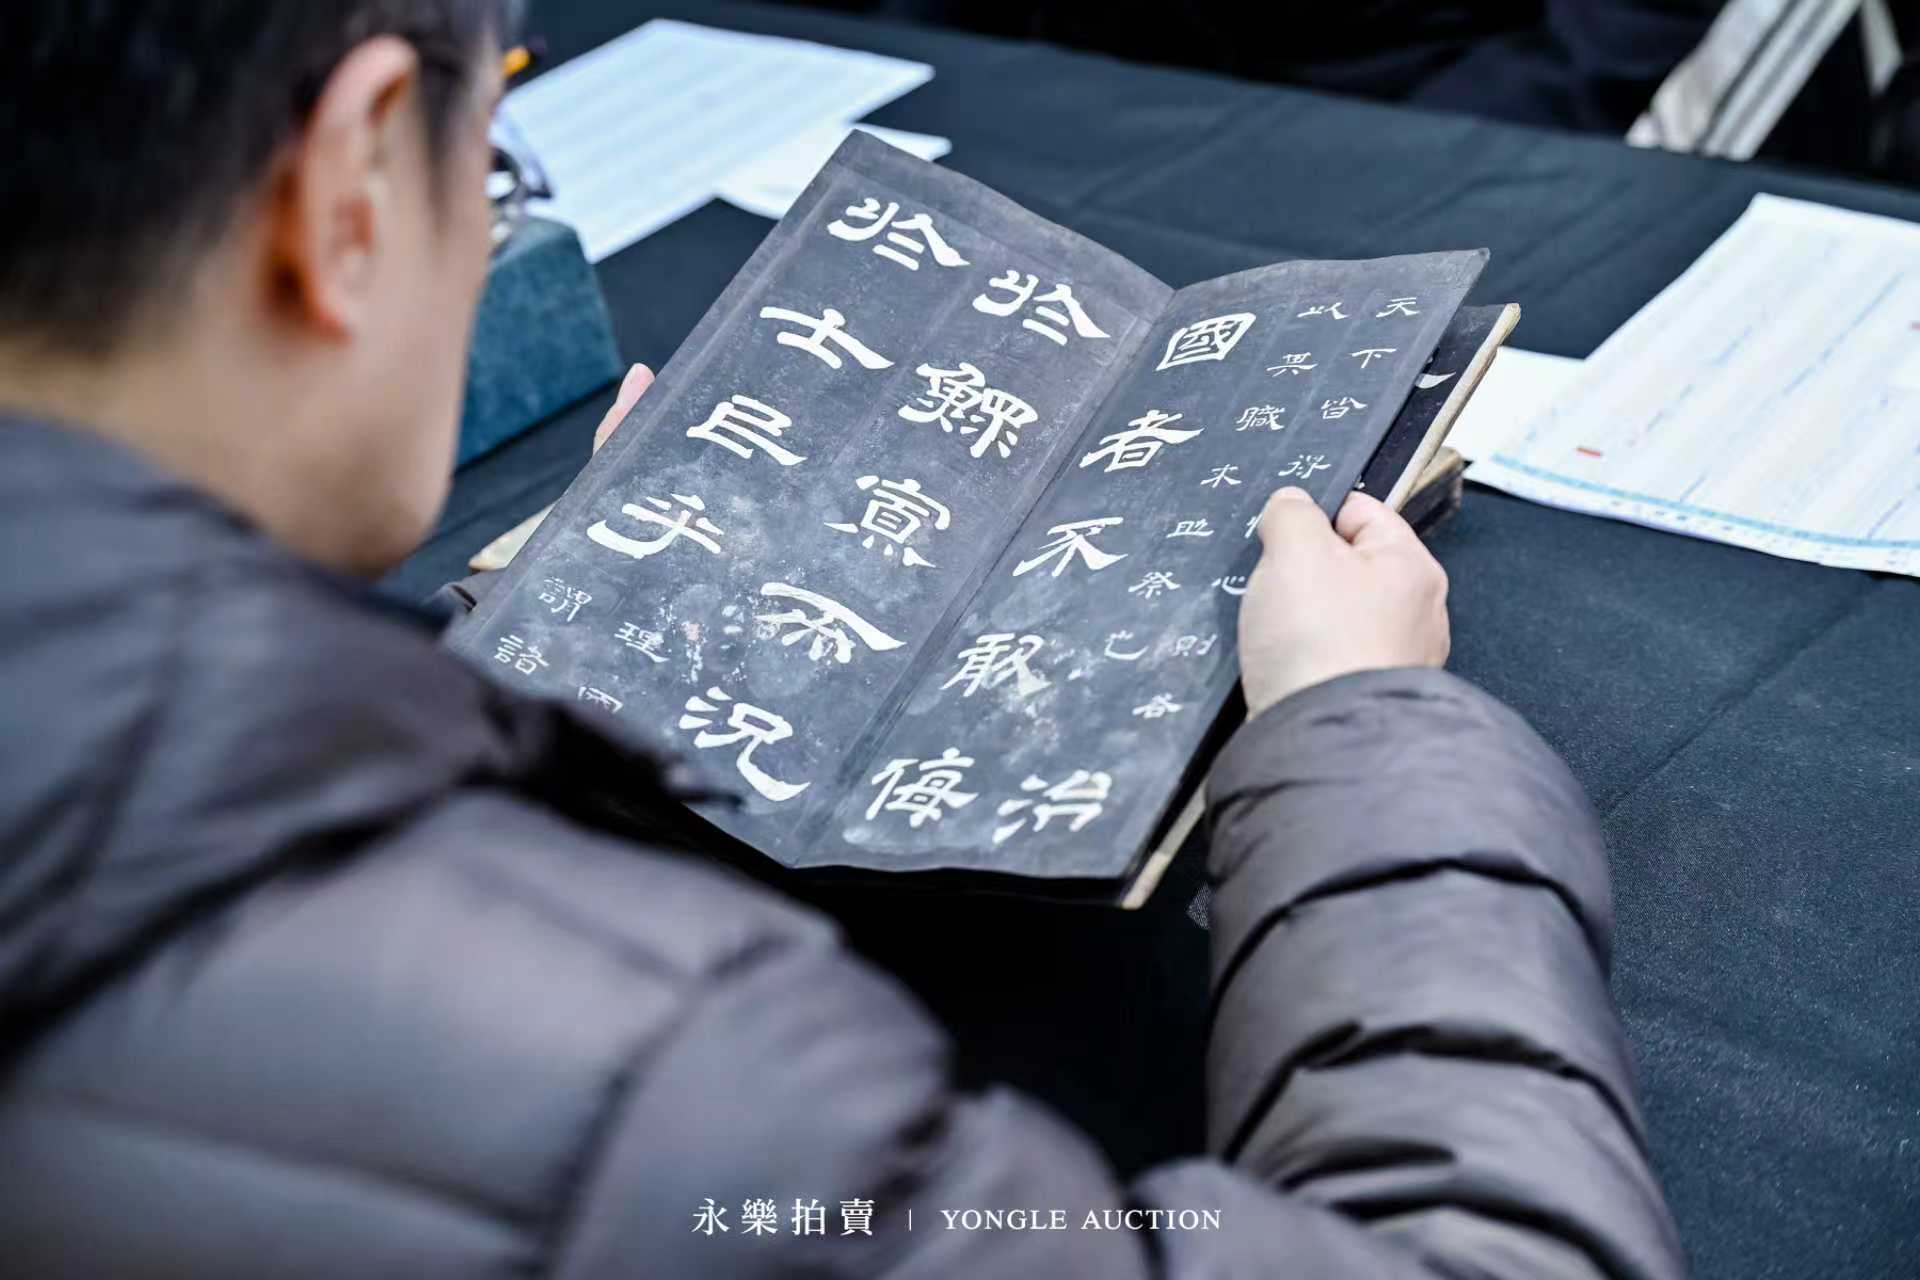 天下皆得心則各
以其職来助祭也
治
國者不敢侮
於鰥寡而況
於士民乎
理國
謂諸
永樂拍賣 | YONGLE AUCTION